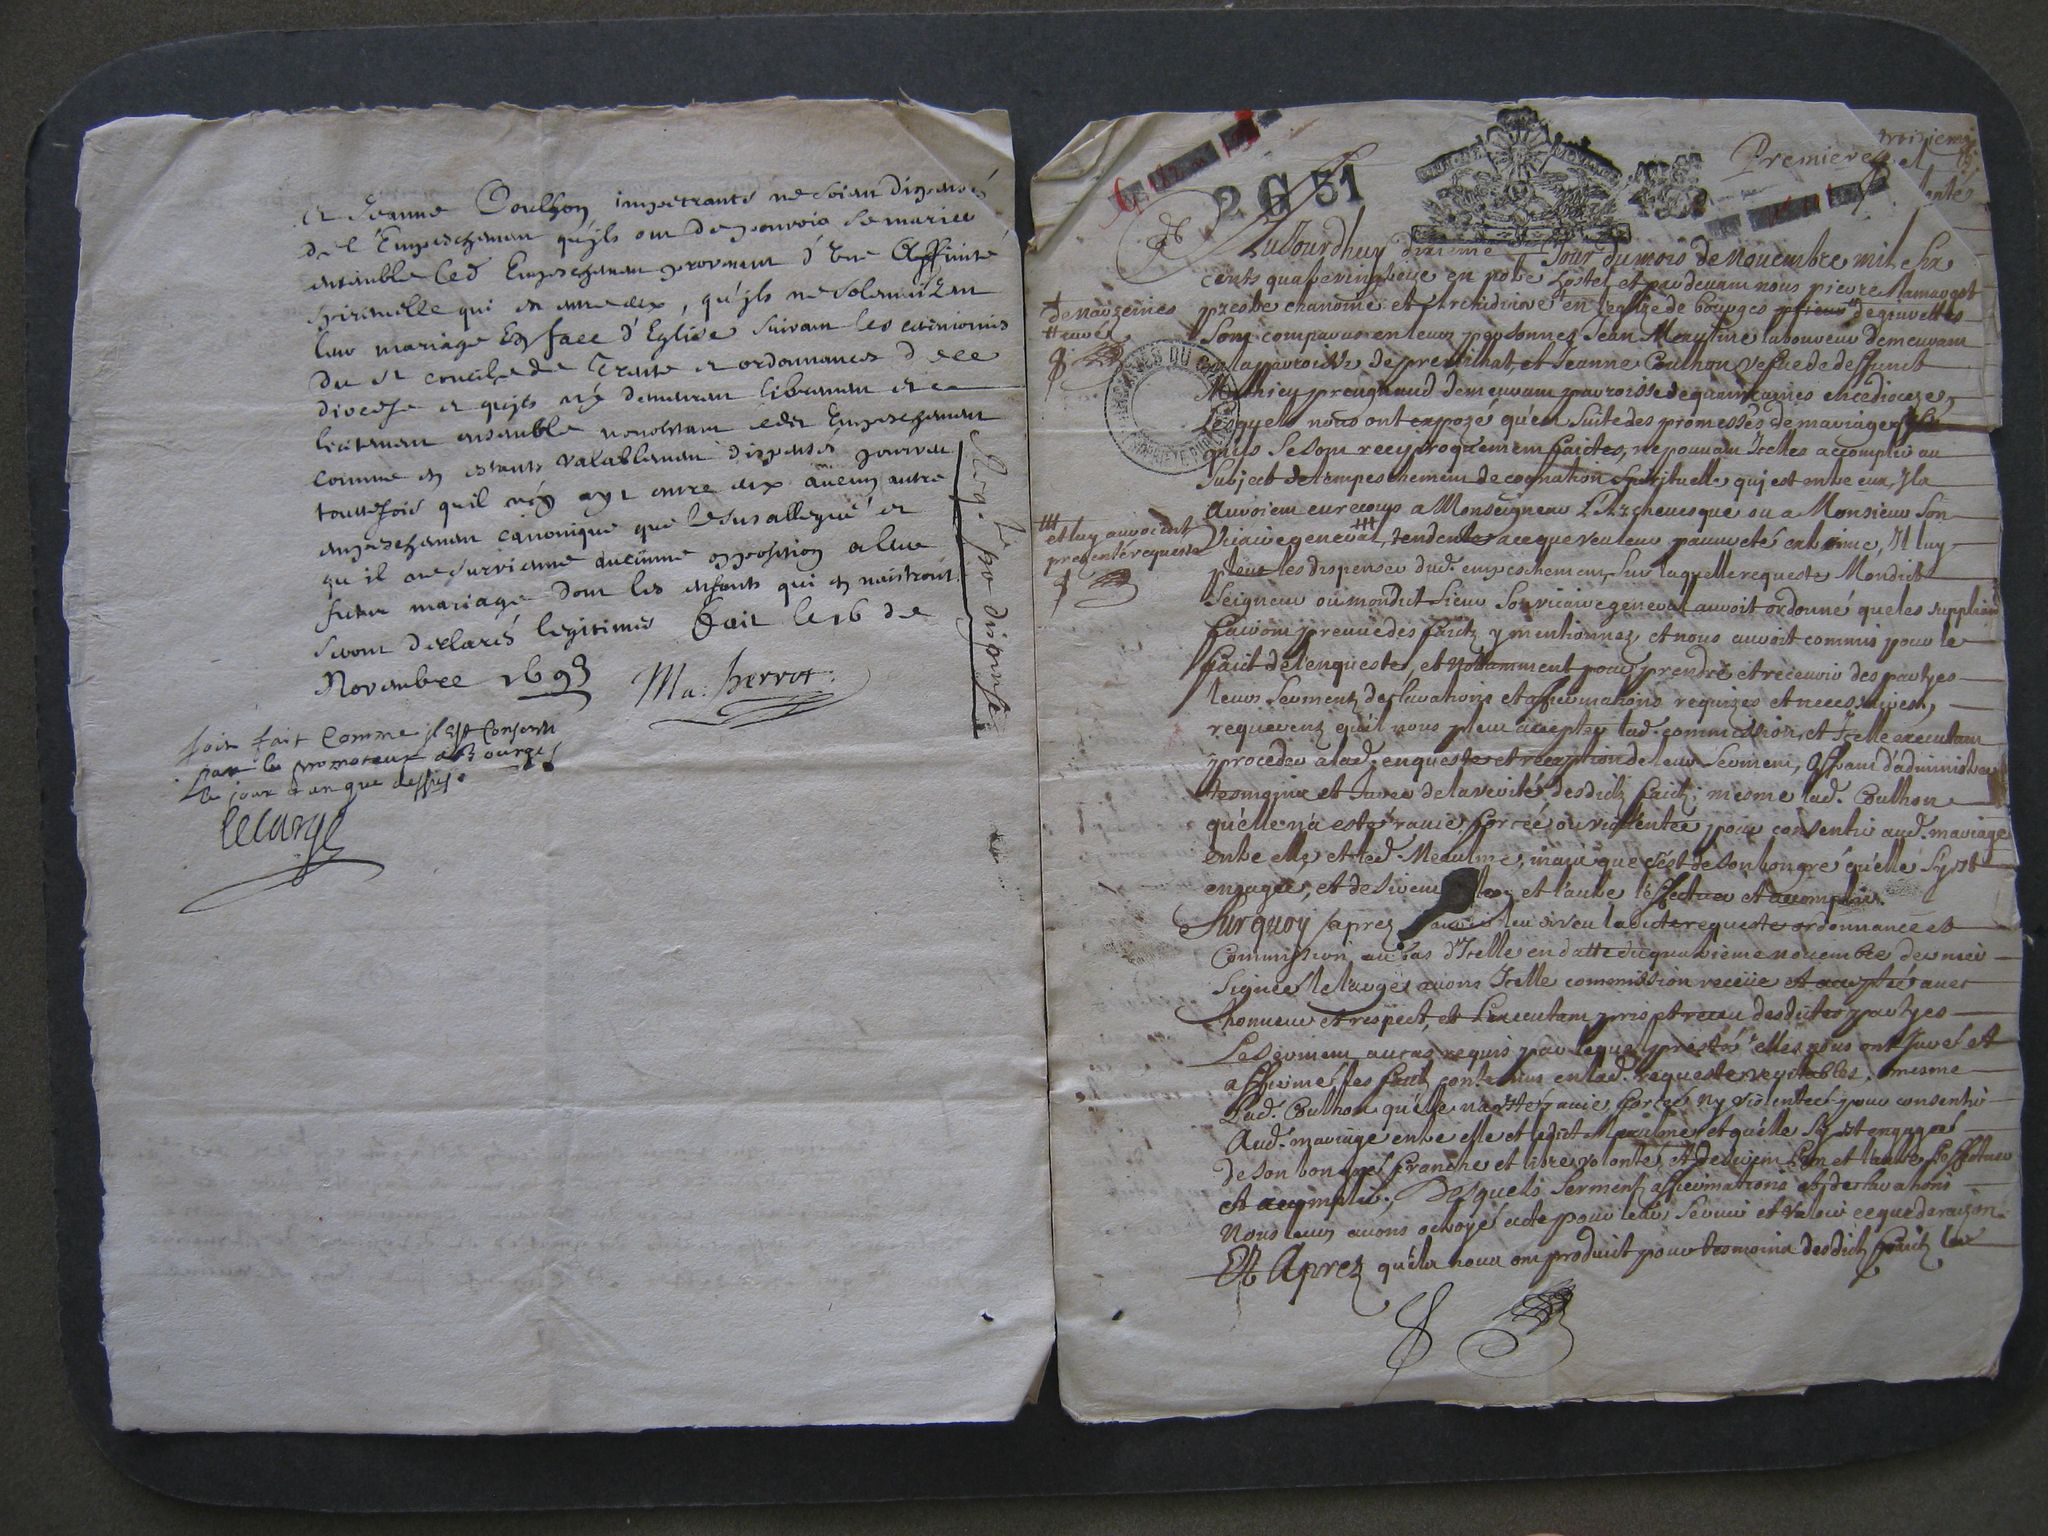 et Jeanne Coulhon impetrants ne soient dispensés
de l'Empeschement qu'jls ont de pouvoir se marier
ensemble led Empeschement provenant d'vne Affinité
spirituelle qui est entre eux, qu'jls ne solemnizent
leur mariage En face d'Eglise suivant les ceremonies
du st concile de Trente et ordonnances de ce
diocese et qu'jls ne demeurent librement et
licitement ensemble nonobstant cedit Empeschement
comme en estants valablement dispensés pourveu
touttefois qu'il n'éy ayt entre eux aucun autre
empeschement canonique que le susallegué et
qu'il ne survienne aucunne opposition a leur
futur mariage dont les enfants qui en naistront
seront declarés legitimes Fait le 16 de
Novembre 1693 Ma: perrot
po dispense
soit fait comme jl est consenti
par le promoteur a Bourges
le jour et an que dessus
lelarge
2 G 51
Premiere et
troisieme
Aujourdhuy dixieme Jour du mois de Nouembre mil six
cents quatrevingt treize en notre hostel et pardevant nous pierre
presbtre chanoine et Archidiacre en leglise de bourges
de nauzeines
Sont comparus en leurs personnes Jean Meaulme laboureur demeurant
en la parroisse de et Jeanne Coulhon vefue de deffunct
Mathieu demeurant parroisse de en ce dioceze,
Lesquels nous ont exposé qu'en suitte des promesses de mariage
qu'ils se sont recyproquement faictes, ne pouuant Jcelles accomplir au
Subject de lempeschement de cognation Spirituelle qui est entre eux, Jls
auroient eu recours a Monseigneur L'Archeuesque ou a Monsieur Son
Vicaire general, tendente a ce que veu leur pauureté Il luy
et luy auroient
presenté requeste
pleut les dispenser dud. empeschement, Sur laquelle requeste Mondict
Seigneur ou mondict Sieur Son vicaire general auroit ordonné que les suppliants
fairoint preuue des faicts y mentionnez, et nous auroit commis pour le
faict de lenqueste, et notamment pour prendre et receuoir des partyes
leurs Serments declarations et affirmations requizes et necessaires,
requerents qu'il nous pleut accepter lad. commission, et Jcelle executant
proceder a lad. enqueste et reception de leur Serment, Offrant d'administrer
tesmoins et Jurer de la verité desdicts faicts, mesme lad. Coulhon
qu'elle n'a esté rauie, forcée ou violentée pour consentir aud. mariage
entre elle et led. Meaulme, mais que c'est de son bon gré qu'elle s'y est
engagée, et desirent l'un et l'autre l'effectuer et accomplir.
Surquoy aprez auoir leu et veu ladicte requeste ordonnance et
Commission au bas d'Jcelle en datte du quatrieme nouembre dernier
Signée lelarge auons Jcelle commission receüe et acceptée auec
honneur et respect, et L'executant pris et receu desdictes partyes
Le serment au cas requis par lequel presté elles nous ont Juré et
affirmé les faicts contenus en lad. requeste veritables, mesme
Lad. Coulhon qu'elle n'a esté rauie forcée ny violentée pour consentir
Aud. mariage entre elle et ledict Meaulme et qu'elle s'y est engagée
de son bon gré franche et libre volonté, et desirent l'un et l'autre l'effectuer
et accomplir, Desquels Serments affirmations et declarations
Nous leurs auons octroyé acte pour leur Seruir et valoir ce que de raizon.
Et Aprez qu'els nous ont produict pour tesmoins desdicts faicts les